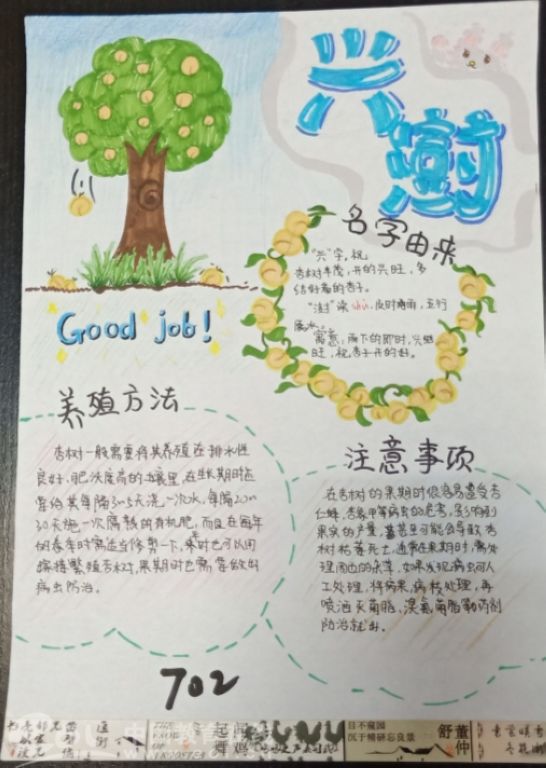 兴澍
名字由来
"兴"字,祝
杏树丰茂,开的兴旺,多
结好看的杏子。
"澍"读shù,及时雨,五行
属水。
寓意:雨下的即时,兴
旺,祝杏子开的好。
Good job!
养殖方法
杏树一般需要将其养殖在排水性
良好,肥沃度高的土壤里,在生长期时还
常给其每隔3~5天浇一次水,每隔20~
30天施一次腐熟的有机肥,而且在每年
的春季时需适当修剪一下,
嫁接繁殖杏树,果期时也需常做好
病虫防治。
注意事项
在杏树的果期时很容易遭受杏
仁蜂,杏象甲等病虫的危害,影响到
果实的产量,甚至可能会导致杏
树枯萎死亡,通常在果期时,需处
理周边的杂草,如果发现病虫可人
工处理,将病果,病枝处理,再
喷洒灭菌脂、溴氰菊脂等药剂
防治就好。
702
目不窥园
沉于精研忘良景
董仲
舒